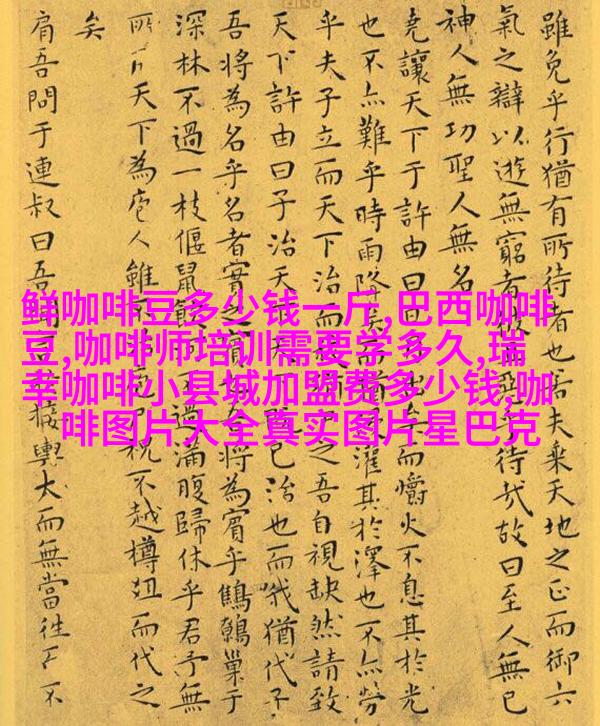 鲜咖啡豆多少钱一斤,巴西咖啡
豆,咖啡师培训需要学多久,瑞
幸咖啡小县城加盟费多少钱,咖
啡图片大全真实图片星巴克
雖免乎行猶有所待者也若夫乘天地之正而御六
氣之辯以遊無窮者彼惡乎待哉故曰至人無己
神人無功聖人無名
堯讓天下于許由曰日出矣而爝火不息其於光
也不亦難乎時雨降矣而灌其於澤也不亦勞
乎夫子立而天下治而之吾自視缺然請致
天下許由曰子治天既已治也而我猶代子
吾將為名乎名者實之吾將為賓乎鷦鷯巢于
深林不過一枝偃鼠飲河不過滿腹歸休乎君予無
所天下為庖人雖不祝不越樽俎而代之
矣
肩吾問于連叔曰吾接輿大而無當往不